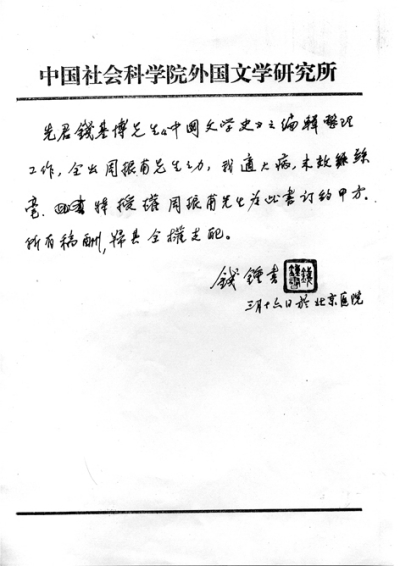 中国社会科学院外国文学研究所
先君錢基博先生《中国文学史》之编輯整理
工作，全出周振甫先生之力，我適大病，未效絲
毫。特授權周振甫先生为此書订约甲方。
所有稿酬，归其全權支配。
錢鍾書
三月十六日於北京医院